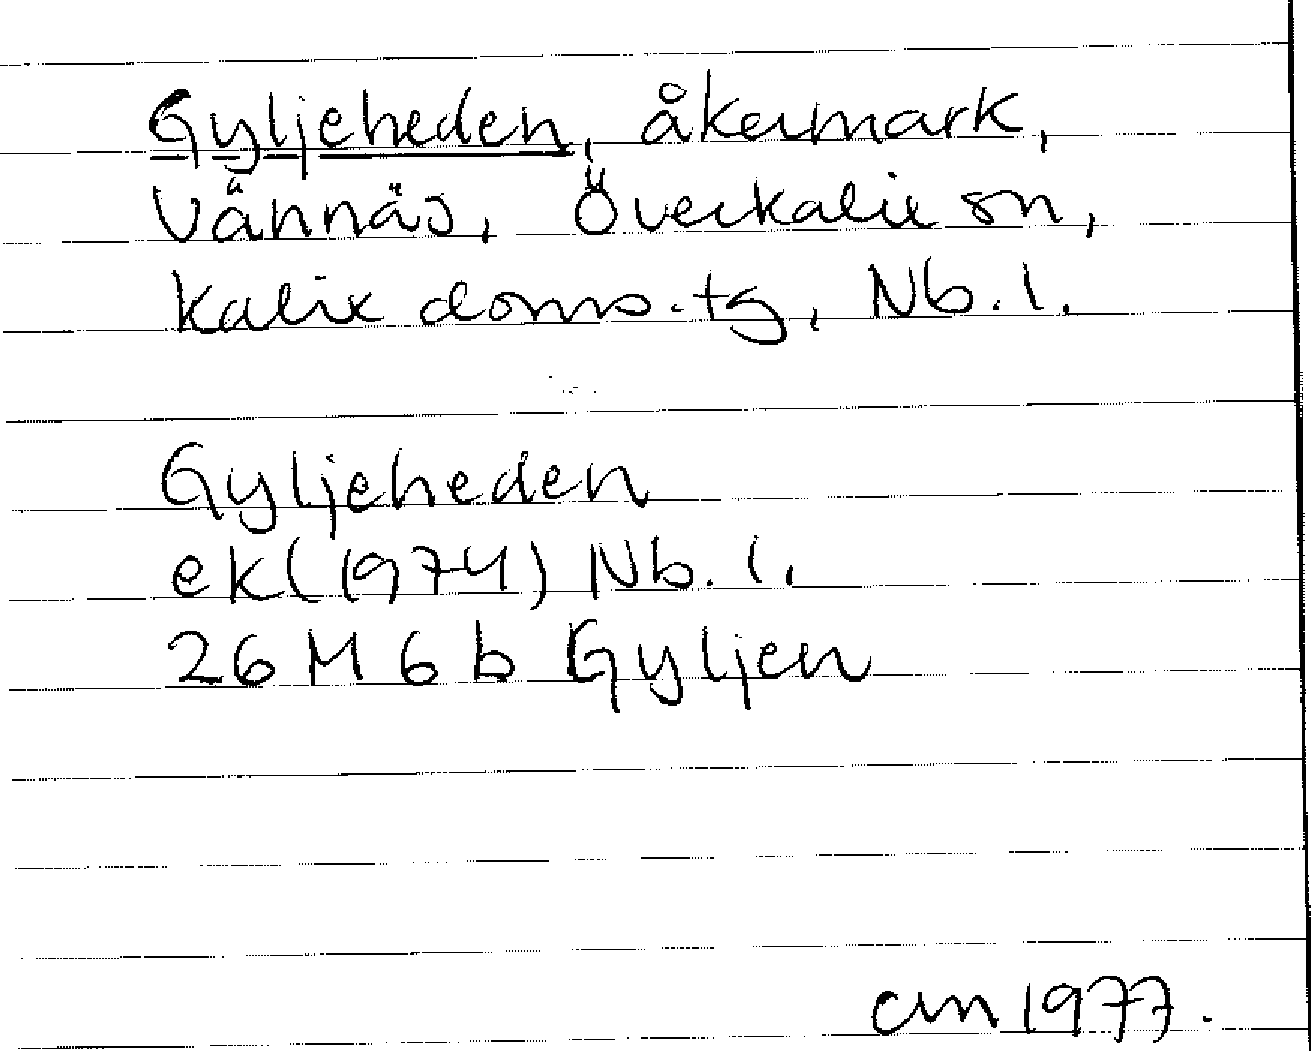 Gyljeheden, åkermark,
Vännäs, Överkalix sn,
Kalix doms.tg, Nb.l.
Gyljeheden
ekl (1974) Nb.l.
26 M 6 b Gyljen
am 1977.